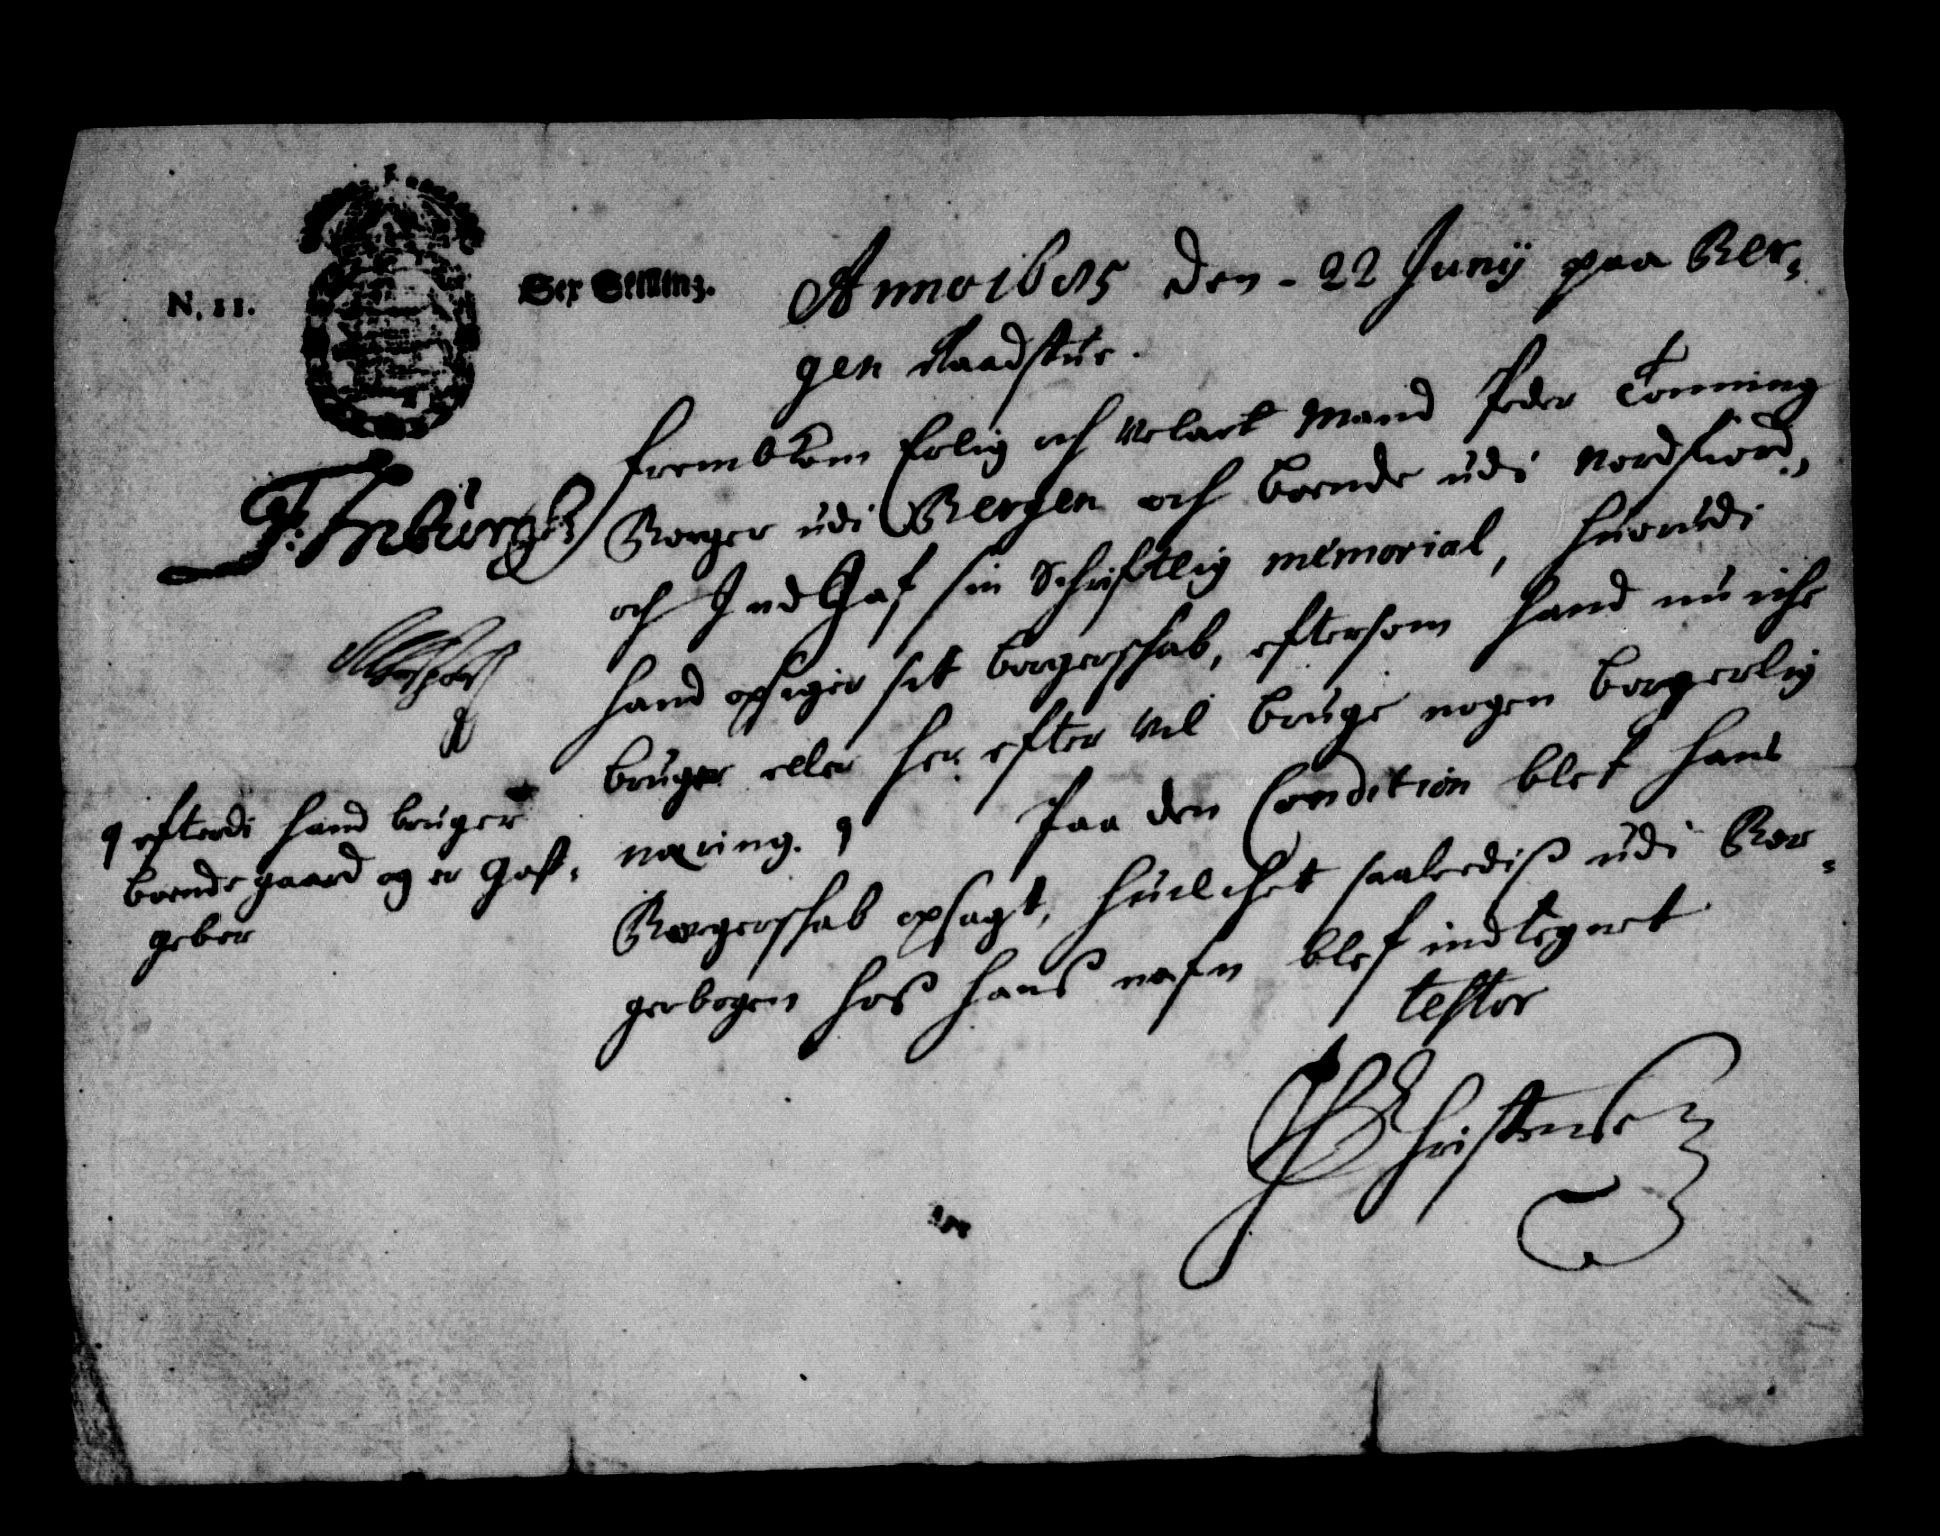 N. 11.
Sex Skilling.
Anno 1685 den - 22 Junij paa Ber-
gen Raadstue.
frembkom Erlig och Velact Mand Peder Tonning
Borger udi Bergen och boende udi Nordfiord,
och Indgaf sin Schriftlig memorial, huorudi
hand opsiger sit borgerschab, eftersom hand nu iche
bruger eller her efter vil bruge nogen borgerlig
næring. Paa den Condition blef hans
Borgerschab opsagt, huilchet saalediß udi Bor-
gerbogen hoß hans nafn blef indtegnet
testor
Christensen
efterdi hand bruger
bondegaard og er Gest-
geber